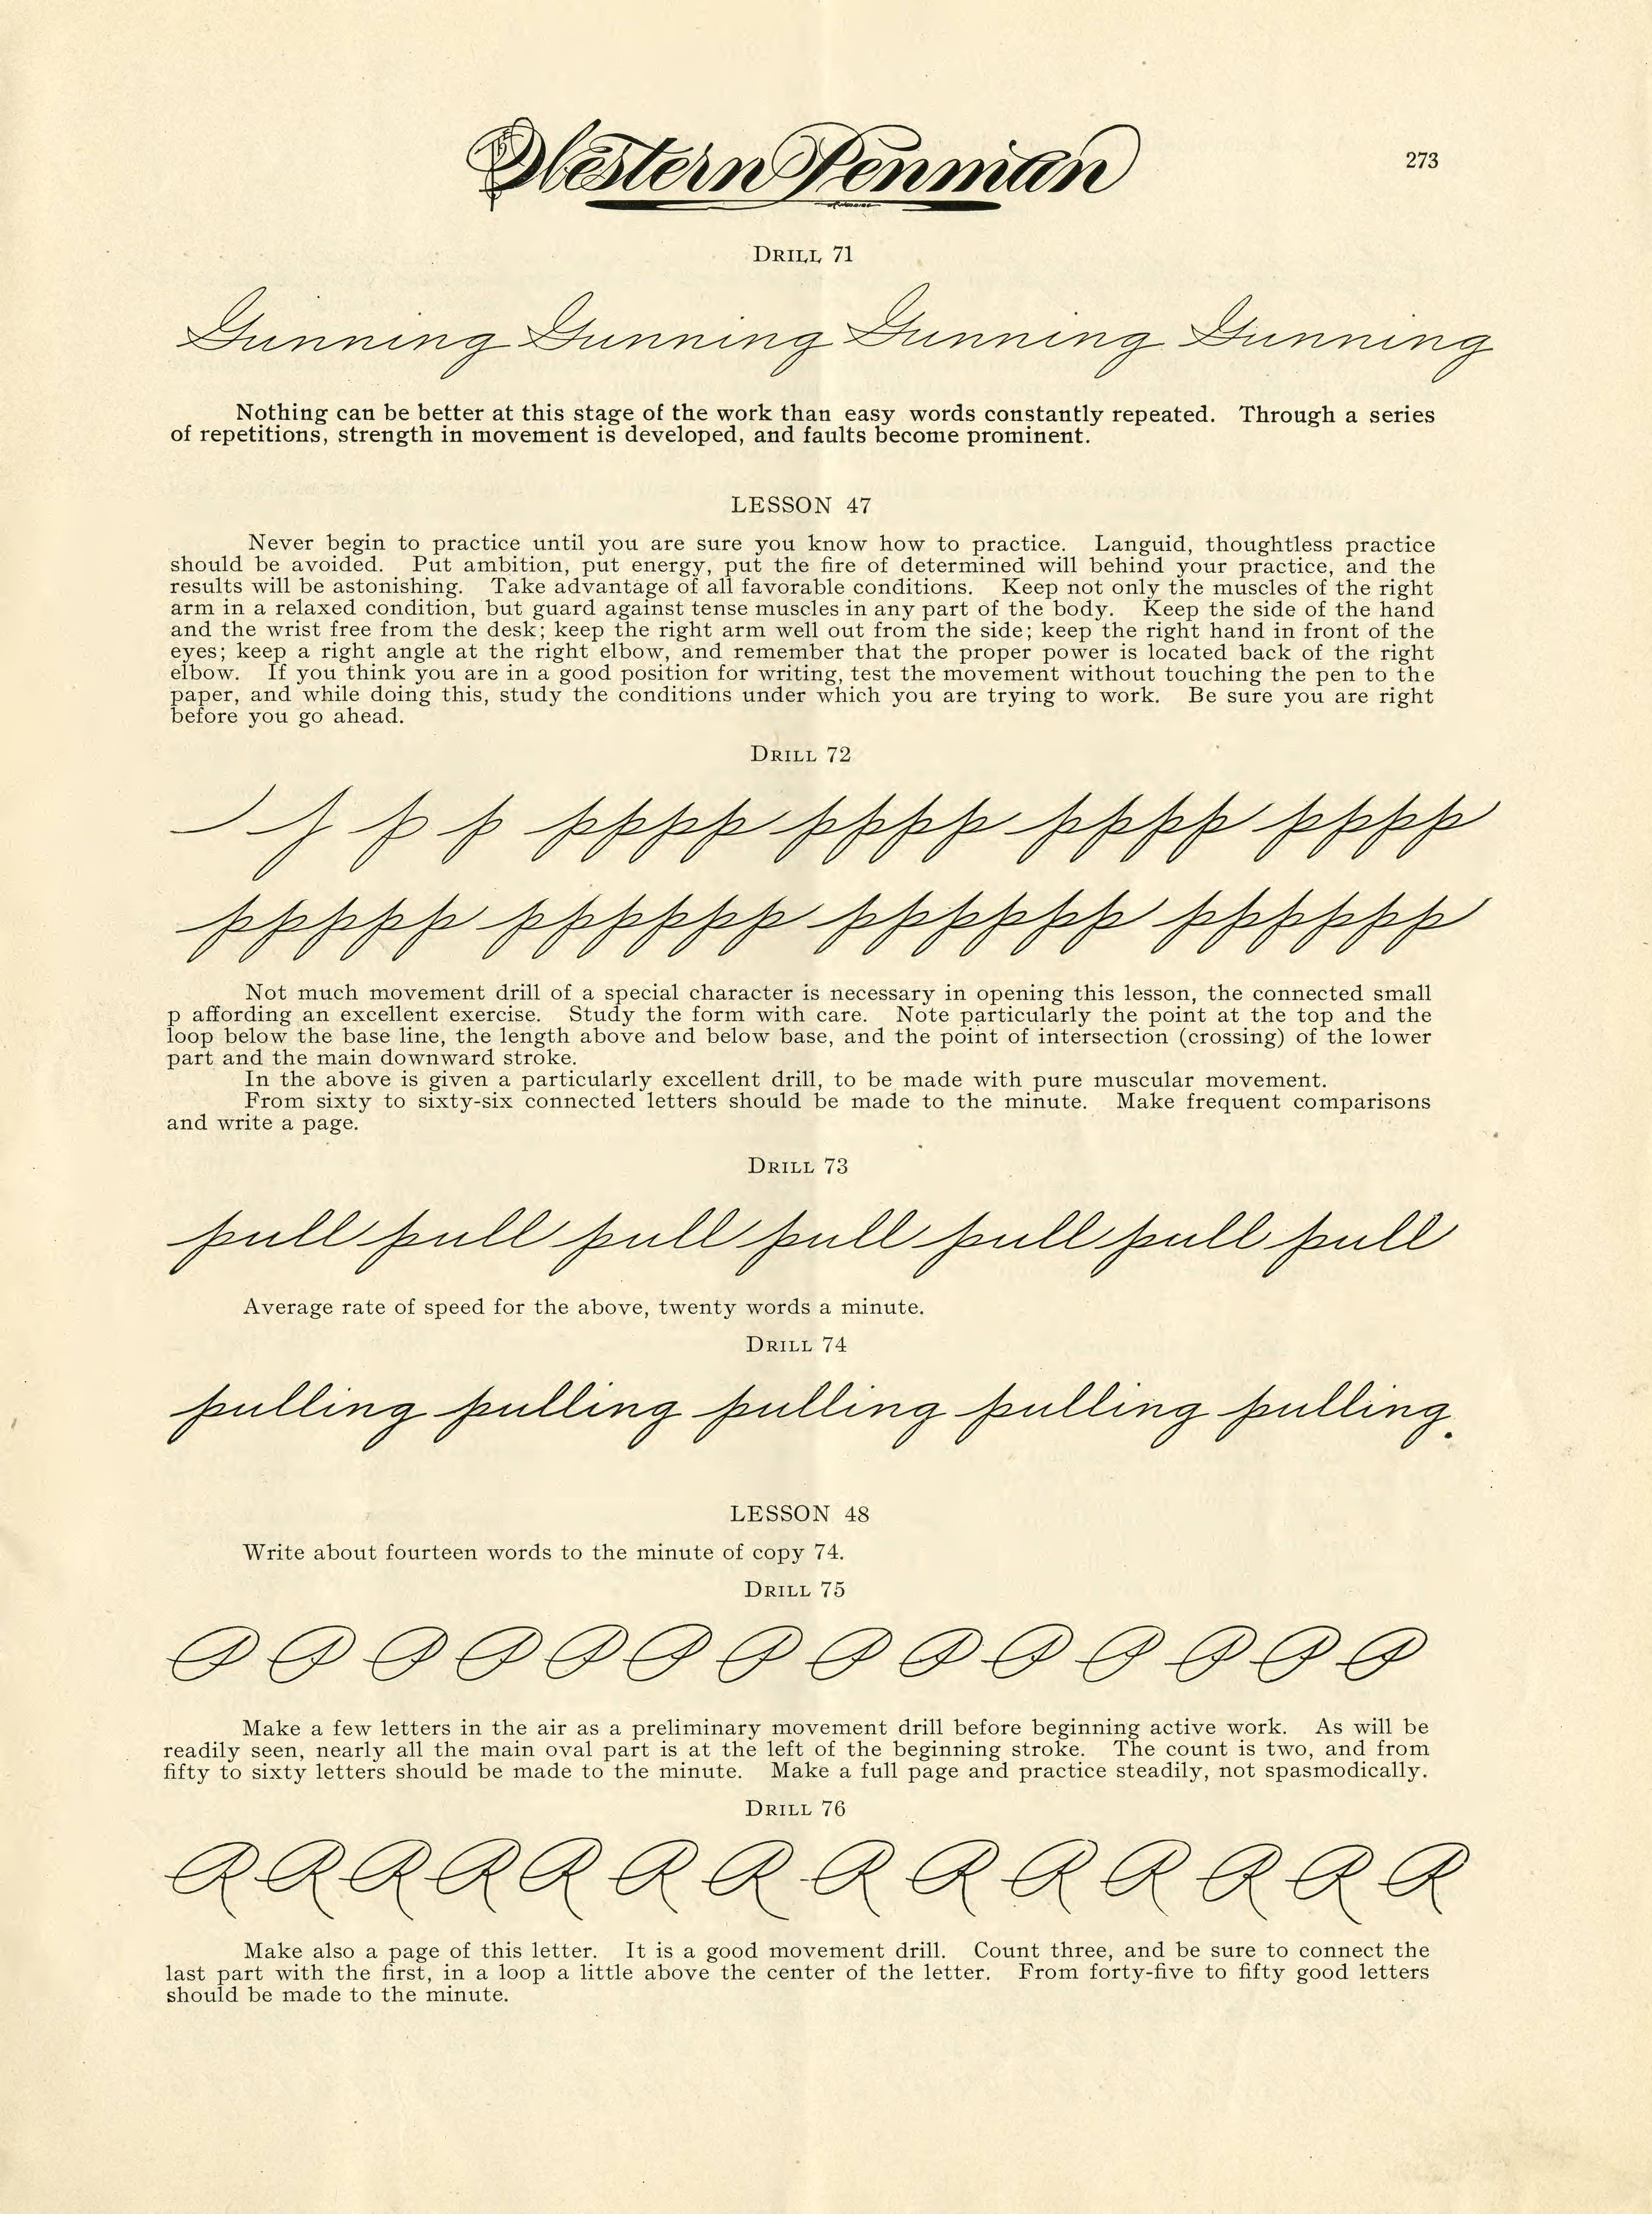 Western Penman
273
DRILL 71
Gunning Gunning Gunning Gunning
Nothing can be better at this stage of the work than easy words constantly repeated. Through a series
of repetitions, strength in movement is developed, and faults become prominent.
LESSON 47
Never begin to practice until you are sure you know how to practice. Languid, thoughtless practice
should be avoided. Put ambition, put energy, put the fire of determined will behind your practice, and the
results will be astonishing. Take advantage of all favorable conditions. Keep not only the muscles of the right
arm in a relaxed condition, but guard against tense muscles in any part of the body. Keep the side of the hand
and the wrist free from the desk; keep the right arm well out from the side; keep the right hand in front of the
eyes; keep a right angle at the right elbow, and remember that the proper power is located back of the right
elbow. If you think you are in a good position for writing, test the movement without touching the pen to the
paper, and while doing this, study the conditions under which you are trying to work. Be sure you are right
before you go ahead.
DRILL 72
p p pppp pppp pppp pppp
ppppp pppppp pppppp pppppp
Not much movement drill of a special character is necessary in opening this lesson, the connected small
p affording an excellent exercise. Study the form with care. Note particularly the point at the top and the
loop below the base line, the length above and below base, and the point of intersection (crossing) of the lower
part and the main downward stroke.
In the above is given a particularly excellent drill, to be made with pure muscular movement.
From sixty to sixty-six connected letters should be made to the minute. Make frequent comparisons
and write a page.
DRILL 73
pull pull pull pull pull pull pull
Average rate of speed for the above, twenty words a minute.
DRILL 74
pulling pulling pulling pulling pulling.
LESSON 48
Write about fourteen words to the minute of copy 74.
DRILL 75
P P P P P P P P P P P P P P
Make a few letters in the air as a preliminary movement drill before beginning active work. As will be
readily seen, nearly all the main oval part is at the left of the beginning stroke. The count is two, and from
fifty to sixty letters should be made to the minute. Make a full page and practice steadily, not spasmodically.
DRILL 76
R R R R R R R R R R R R R R
Make also a page of this letter. It is a good movement drill. Count three, and be sure to connect the
last part with the first, in a loop a little above the center of the letter. From forty-five to fifty good letters
should be made to the minute.